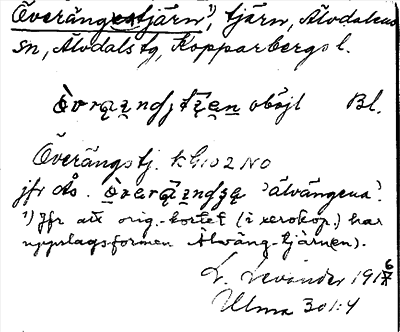 Överängstjärn¹⁾, tjärn, Älvdalens
sn, Älvdals tg, Kopparbergs l.
oböjl Bl.
Överängstj. kG102 NO
jfr ås. 'älvängena'.
¹⁾ Jfr att orig.-kortet (i xerokop.) har
uppslagsformen Älväng-tjärnen).
L. Levander 191
Ulma 301:4